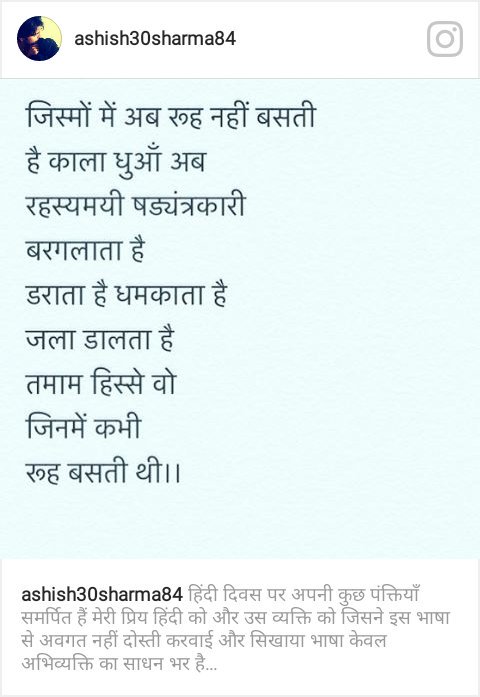 ashish30sharma84
जिस्मों में अब रूह नहीं बसती
है काला धुआँ अब
रहस्यमयी षड्यंत्रकारी
बरगलाता है
डराता है धमकाता है
जला डालता है
तमाम हिस्से वो
जिनमें कभी
रूह बसती थी।।
ashish30sharma84 हिंदी दिवस पर अपनी कुछ पंक्तियाँ
समर्पित हैं मेरी प्रिय हिंदी को और उस व्यक्ति को जिसने इस भाषा
से अवगत नहीं दोस्ती करवाई और सिखाया भाषा केवल
अभिव्यक्ति का साधन भर है...